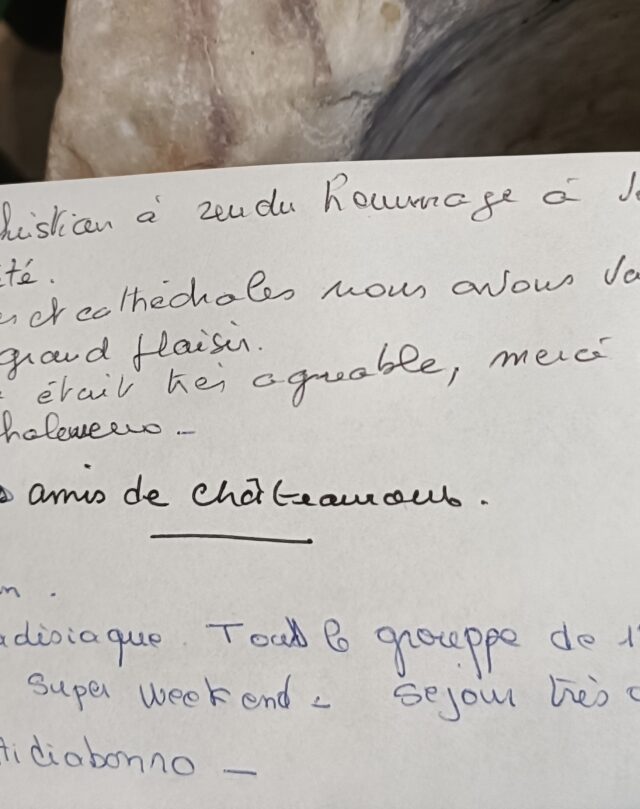 hristian à rendu hommage à
ité.
et cathédrales nous avons
grand plaisir.
était très agréable, merci
chaleureux -
amis de châteauroux.
n.
adisiaque. Tout le grouppe de l'
super weekend - sejour très
tidiabonno -